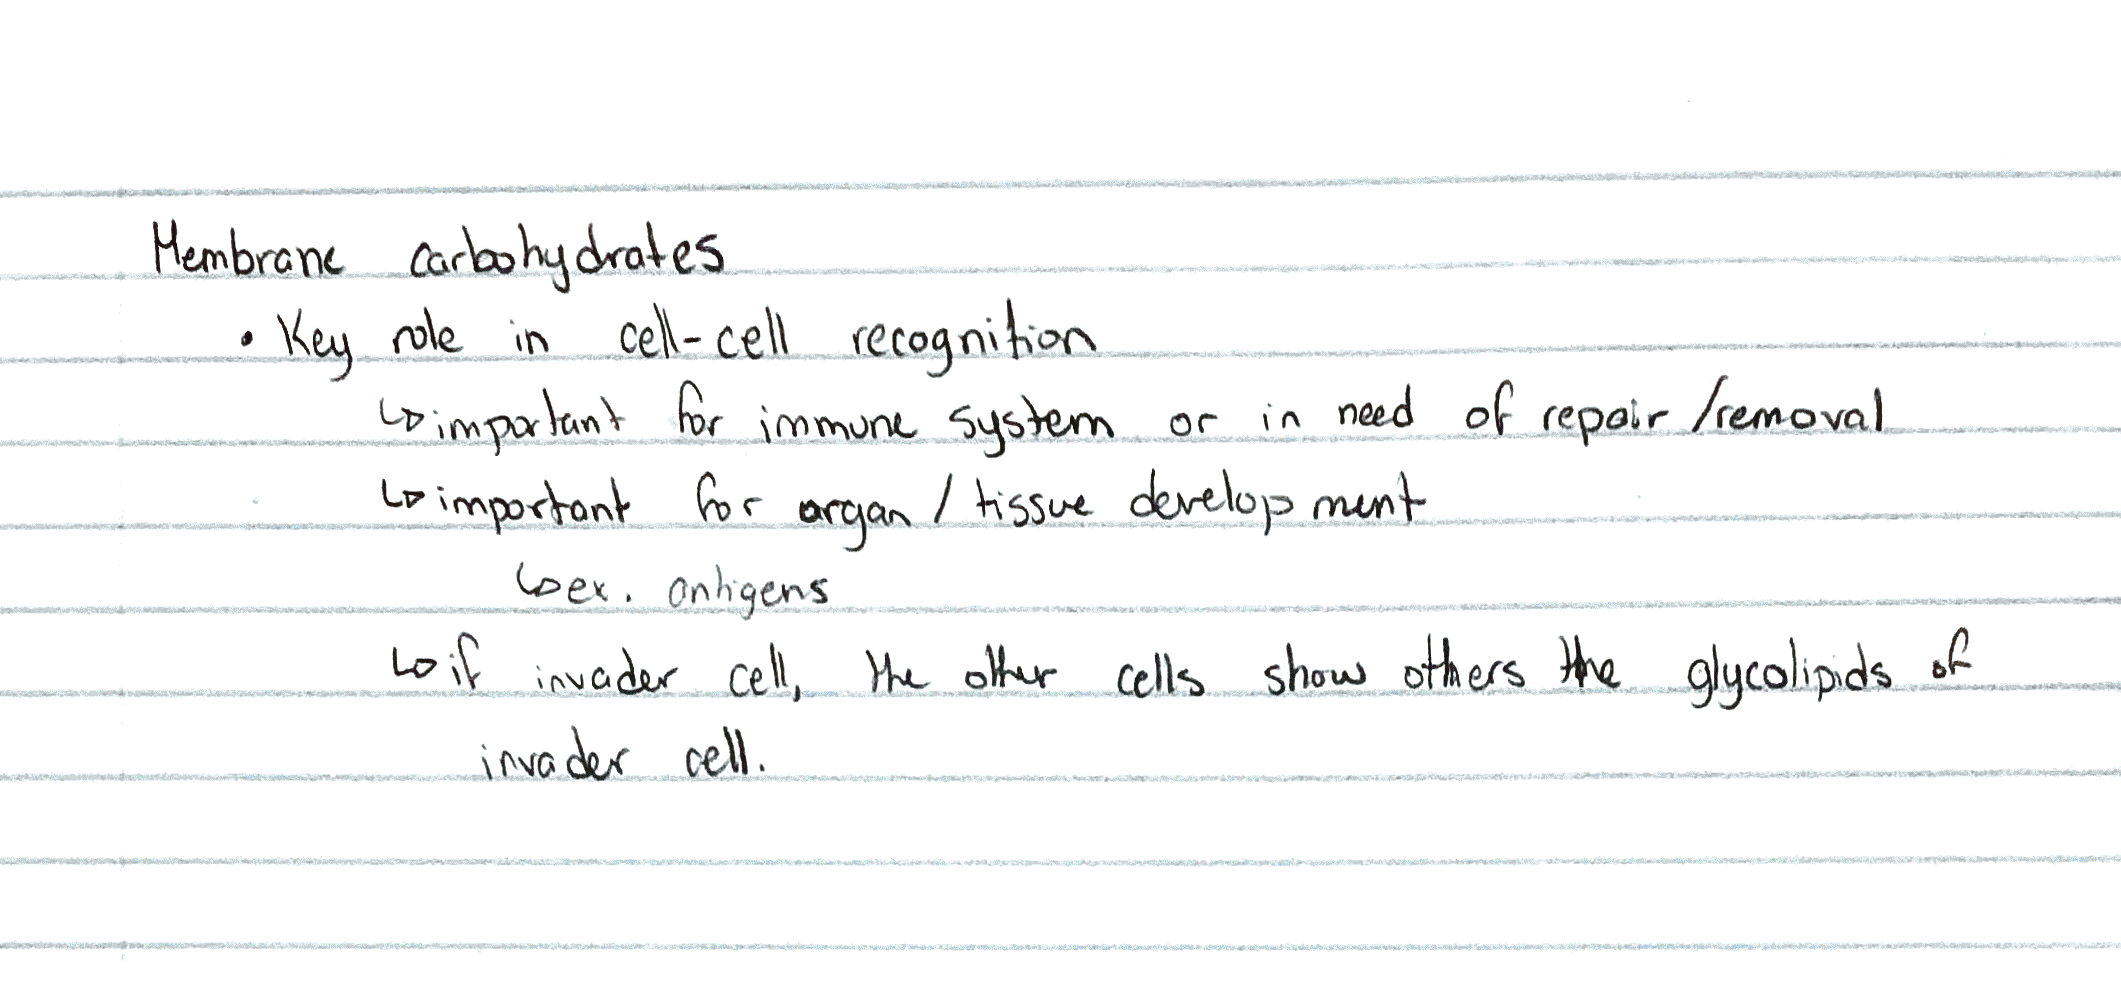 Membrane carbohydrates
• Key role in cell-cell recognition
↳ important for immune system or in need of repair/removal
↳ important for organ/tissue development
↳ ex. antigens
↳ if invader cell, the other cells show others the glycolipids of
invader cell.